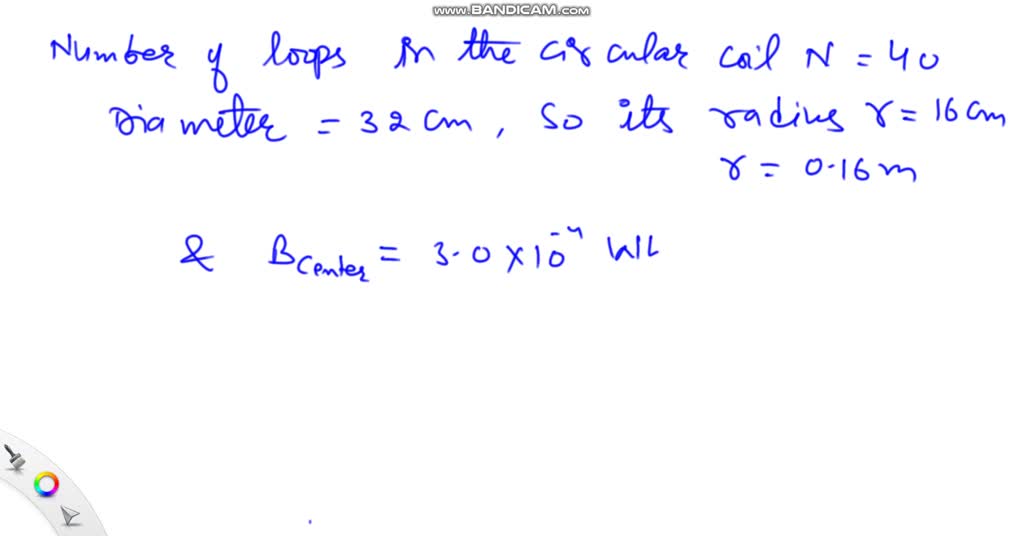 www.BANDICAM.com
Number of loops in the circular coil N = 40
Diameter = 32 cm, So its radius r = 16 cm
r = 0.16 m
& B_Center = 3.0 × 10^-4